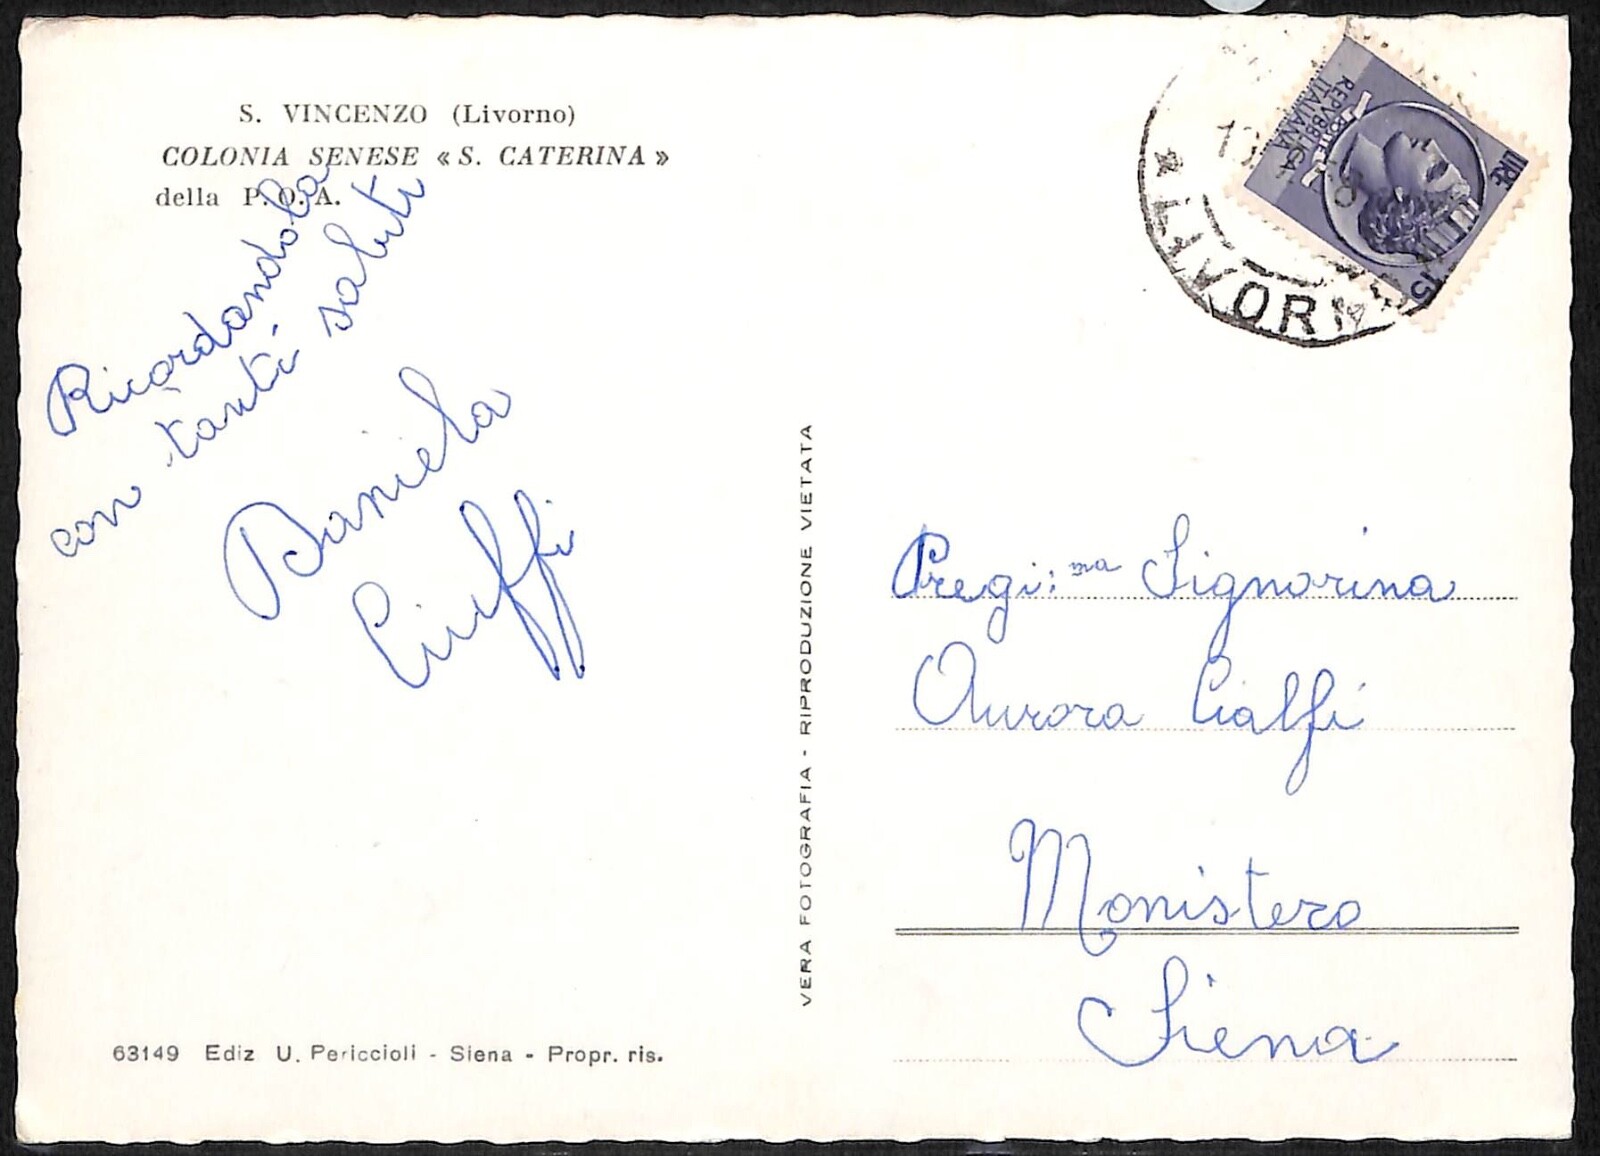 S. VINCENZO (Livorno)
COLONIA SENESE « S. CATERINA »
della P.O.A.
Ricordandola
con tanti saluti
Daniela
Ciuffi
63149 Ediz U. Periccioli - Siena - Propr. ris.
VERA FOTOGRAFIA - RIPRODUZIONE VIETATA
REPVBBLICA
ITALIANA
POSTE
LIRE
15
LIVORN
Pregi:ma Signorina
Aurora Cialfi
Monistero
Siena